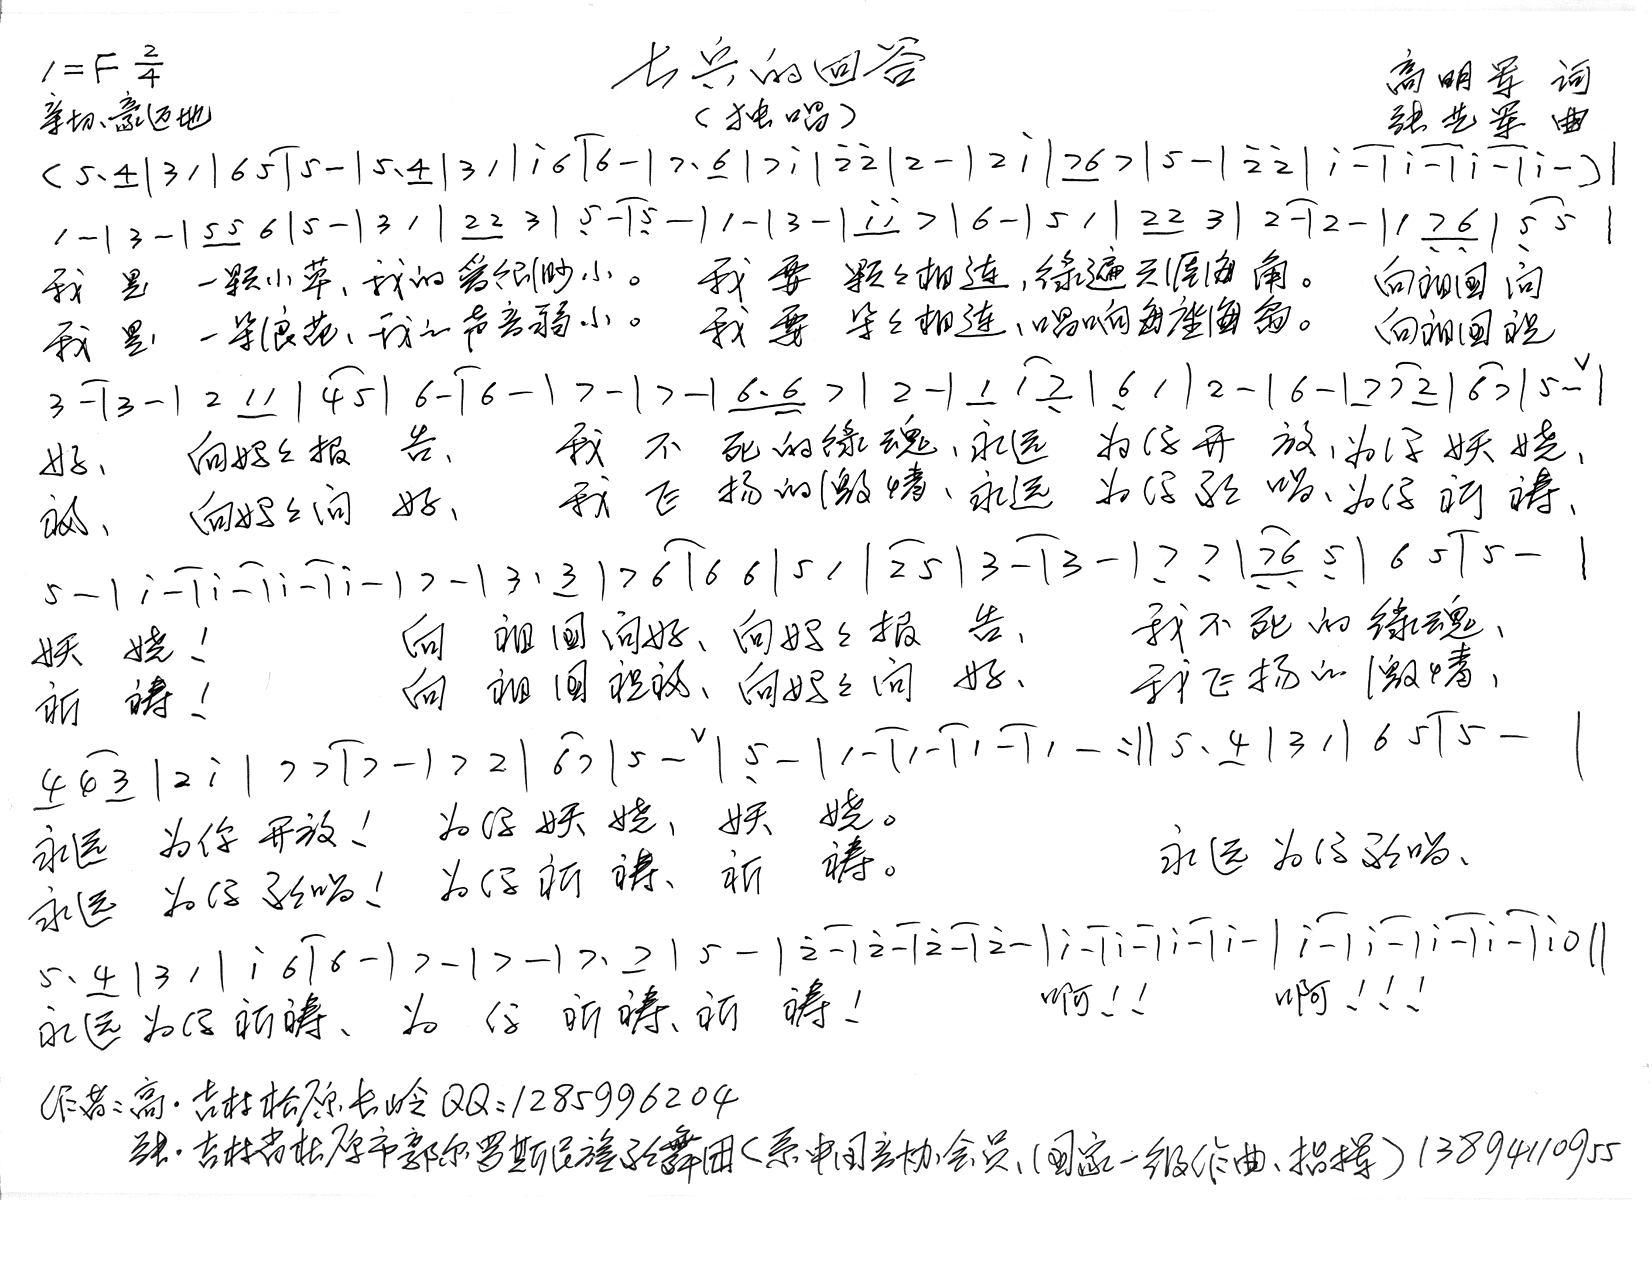 1=F 2/4
士兵的回答
高明军 词
亲切、豪迈地
(独唱)
张先军 曲
(5.4|31|65|5-|5.4|31|i6|6-|7.6|7i|2̇2̇|2-|2i|767|5-|2̇2̇|i-|i-|i-|i-)|
1-|3-|556|5-|31|223|5-|5-|1-|3-|ii7|6-|51|223|2-|2-|176|55|
我是一颗小草、我的爱很渺小。我要颗々相连,绿遍天涯海角。向祖国问
我是一朵浪花、我的声音弱小。我要朵々相连、唱响每座海岛。向祖国祝
3-|3-|211|45|6-|6-|7-|7-|6.67|2-|112|61|2-|6-|772|67|5-ᵛ|
好、向妈々报告、我不死的绿魂、永远为你开放,为你妖娆、
福、向妈々问好、我飞扬的激情、永远为你歌唱、为你祈祷、
5-|i-|i-|i-|i-|7-|3.3|76|66|51|25|3-|3-|77|765|65|5-|
妖娆! 向祖国问好、向妈々报告、我不死的绿魂、
祈祷! 向祖国祝福、向妈々问好、我飞扬的激情、
463|2i|77|7-|72|67|5-ᵛ|5-|1-|1-|1-|1-:||5.4|31|65|5-|
永远为你开放!为你妖娆、妖娆。
永远为你歌唱!为你祈祷、祈祷。 永远为你歌唱、
5.4|31|i6|6-|7-|7-|7.7|5-|2̇-|2̇-|2̇-|2̇-|i-|i-|i-|i-|i-|i-|i-|i-|i0||
永远为你祈祷、为你祈祷、祈祷! 啊!! 啊!!!
作者:高·吉林松原长岭QQ:1285996204
张·吉林省松原市郭尔罗斯民族歌舞团(系中国音协会员、国家一级作曲、指挥)13894110955